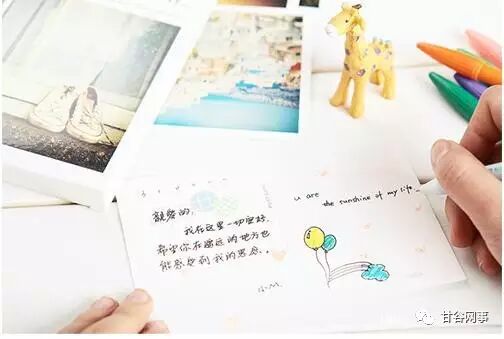 亲爱的:
我在这里一切安好,
希望你在遥远的地方也
能感受到我的思念。
u are
the sunshine of my life.
甘谷网事